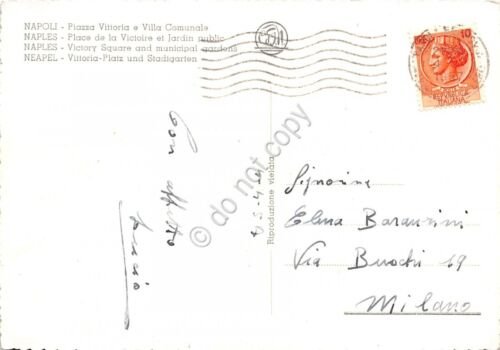 NAPOLI - Piazza Vittoria e Villa Comunale
NAPLES - Place de la Victoire et Jardin public
NAPLES - Victory Square and municipal gardens
NEAPEL - Vittoria-Platz und Stadigarten
10
ITALIANA
Con affetto
Riproduzione vietata
do not copy
Signorina
Elena Baranzini
Via Buschi 69
Milano